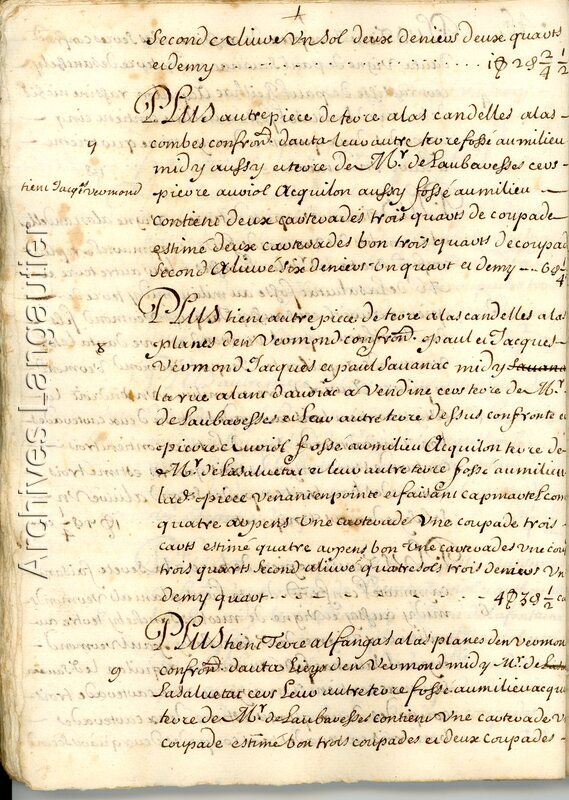 Second aliuré Vn sol deux deniers deux quarts
et demy 1 ꝭ 2 ₰ 2/4 1/2
PLUS autre piece de terre a las candelles a las
7
combes confrond. d'auta leur autre terre fossé au milieu
midy aussy et terre de Mr. de Laubaresses cers
tient Jacqs. vermond
pierre auriol Acquilon aussy fossé au milieu
contient deux carterades trois quarts de coupade
estimé deux carterades bon trois quarts de coupad
Second Aliuré Six deniers Un quart et demy --- 6 ₰ 1/4
PLUS tient autre piece de terre a las candelles a las
8
planes den Vermond confrond. & paul et Jacques
Vermond Jacques et paul Sauanac midy
la rue alant d'auriac a Vendine cers terre de Mr.
de Laubaresses et Leur autre terre dessus confronte e
pierre Auriol fossé au milieu Acquilon terre de
Mr. de Lasaluetat et leur autre terre fosse au milieu
lad. piece venant en pointe et faisant cap martel con
quatre arpens vne carterade Vne coupade trois
carts estimé quatre arpens bon vne carterades vne cou
trois quarts Second aliuré quatre sols trois deniers Vn
demy quart 4 ꝭ 3 ₰ 1/2
PLUS tient Terre al fangas a las planes den Vermon
9
confrond. d'auta Lieys den Vermond midy Mr. de
Lasaluetat cers Leur autre terre fossé au milieu acqu
terre de Mr. de Laubaresses contient vne carterade V
coupade estimé bon trois coupades et deux coupades
Archives Langautier